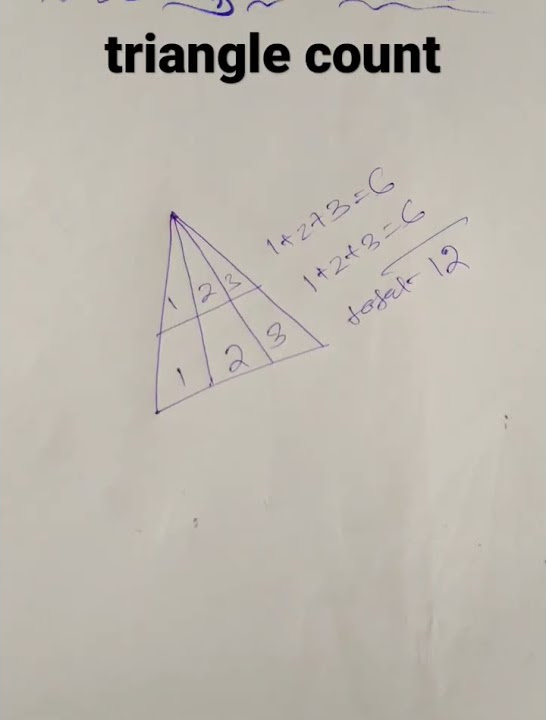 triangle count
1+2+3=6
1+2+3=6
total- 12
1 2 3
1 2 3